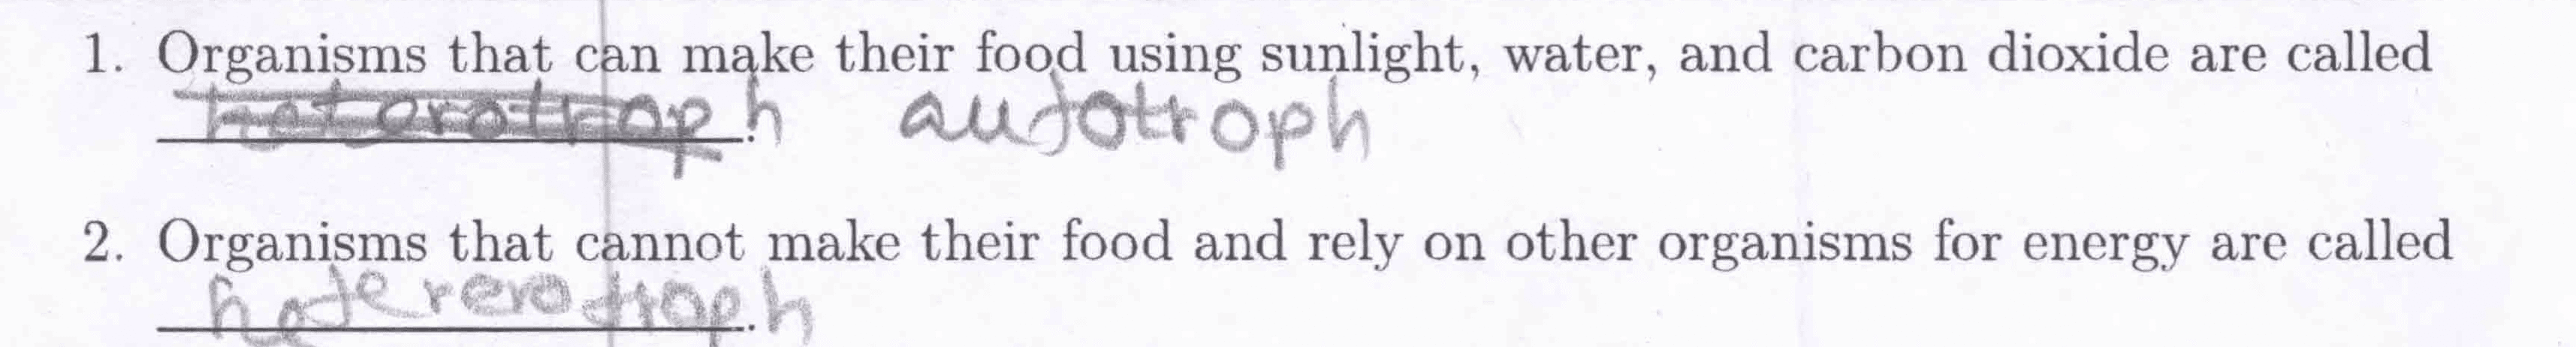 1. Organisms that can make their food using sunlight, water, and carbon dioxide are called
heterotroph. autotroph
2. Organisms that cannot make their food and rely on other organisms for energy are called
hotererotroph.